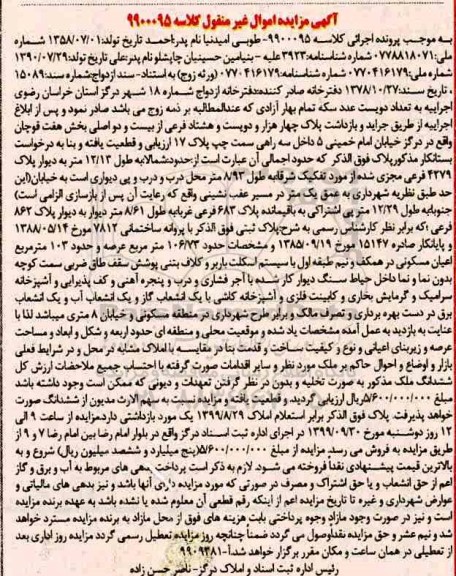 آگهی مزایده اموال غیر منقول کلاسه ۹۹۰۰۰۹۵
به موجب پرونده اجرائی کلاسه ۹۹۰۰۰۹۵- طوبی امیدنیا نام پدر:احمد تاریخ تولد:۱۳۵۸/۰۷/۰۱ شماره
ملی:۰۷۷۸۸۱۸۰۷۱ شماره شناسنامه:۳۹۲۳ علیه -بنیامین حسینیان چاپشلو نام پدر:علی تاریخ تولد:۱۳۹۰/۰۷/۲۹
شماره ملی:۰۷۷۰۴۱۶۱۷۹ شماره شناسنامه:۰۷۷۰۴۱۶۱۷۹ (ورثه زوج) به استناد- سند ازدواج شماره سند:۱۵۰۸۹
، تاریخ سند:۱۳۷۸/۱۰/۲۷ دفترخانه صادر کننده:دفترخانه ازدواج شماره ۱۸ شهر درگز استان خراسان رضوی
اجراییه به تعداد دویست عدد سکه تمام بهار آزادی که عندالمطالبه بر ذمه زوج می باشد صادر نمود و پس از ابلاغ
اجراییه از طریق جراید و بازداشت پلاک چهار هزار و دویست و هشتاد فرعی از بیست و دو اصلی بخش هفت قوچان
واقع در درگز خیابان امام خمینی ۵ داخل سه راهی سمت چپ پلاک ۱۷ ارزیابی و قطعیت یافته و بنا به درخواست
بستانکار مذکور پلاک فوق الذکر که حدود اجمالی آن عبارت است از:حدود:شمالا:به طول ۱۲/۱۳ متر به دیوار پلاک
۴۲۷۹ فرعی مجزی شده از مورد تفکیک شرقا:به طول ۸/۹۳ متر محل درب و درب و پی دیواری است به خیابان(این
حد طبق نظریه شهرداری به عمق یک متر در مسیر عقب نشینی واقع که رعایت آن پس از بازسازی الزامی است)
جنوبا:به طول ۱۲/۲۹ متر پی اشتراکی به باقیمانده پلاک ۶۸۳ فرعی غربا:به طول ۸/۶۱ متر دیوار به دیوار پلاک ۸۶۲
فرعی ؛که برابر نظر کارشناس رسمی به شرح:پلاک ثبتی فوق الذکر با پروانه ساختمانی ۷۸۱۲ مورخ ۱۳۸۸/۰۵/۱۴
و پایانکار صادره ۱۵۱۴۷ مورخ ۱۳۸۵/۰۹/۱۹ و مشخصات حدود ۱۰۶/۷۳ متر مربع عرصه و حدود ۱۰۳ مترمربع
اعیان مسکونی در همکف و نیم طبقه اول با سیستم اسکلت باربر و کلاف بتنی پوشش سقف طاق ضربی سمت کوچه
بدون نما و نما داخل حیاط سنگ دیوار کار شده با آجر فشاری و درب و پنجره آهنی و کف پذیرایی و آشپزخانه
سرامیک و گرمایش بخاری و کابینت فلزی و آشپزخانه کاشی با یک انشعاب گاز و یک انشعاب آب و یک انشعاب
برق در دست بهره برداری و تصرف مالک و برابر طرح شهرداری در منطقه مسکونی و خیابان ۸ متری میباشد لذا با
عنایت به بازدید به عمل آمده مشخصات یاد شده و موقعیت محلی و منطقه ای حدود اربعه و شکل و ابعاد و مساحت
عرصه و زیربنای اعیانی و نوع ز کیفیت ساخت و قدمت بنا در مقایسه با املاک مشابه در محل و در شرایط فعلی
بازار و اوضاع و احوال حاکم بر ملک مورد نظر و سایر اقدامات صورت گرفته با احتساب جمیع ملاحضات ارزش کل
ششدانگ ملک مذکور به صورت تخلیه و بدون در نظر گرفتن تعهدات و دیونی که ممکن است وجود داشته باشد
مبلغ ۵/۶۰۰/۰۰۰/۰۰۰ریال ارزیابی گردید، و قطعیت یافته و مزایده نسبت به سهم الارث مدیون از ششدانگ صورت
خواهد پذیرفت. پلاک فوق الذکر برابر استعلام املاک ۱۳۹۹/۸/۲۹ یک مورد بازداشتی دارد.مزایده از ساعت ۹ الی
۱۲ روز دوشنبه مورخ ۱۳۹۹/۰۹/۳۰ در اجرای اداره ثبت اسناد درگز واقع در بلوار امام رضا بین امام رضا ۷ و ۹ از
طریق مزایده به فروش می رسد. مزایده از مبلغ ۵/۶۰۰/۰۰۰/۰۰۰(پنج میلیارد و ششصد میلیون ریال) شروع و به
بالاترین قیمت پیشنهادی نقدا فروخته می شود. لازم به ذکر است پرداخت بدهی های مربوط به آب و برق و گاز
اعم از حق انشعاب و یا حق اشتراک و مصرف در صورتی که مورد مزایده دارای آنها باشد و نیز بدهی های مالیاتی و
عوارض شهرداری و غیره تا تاریخ مزایده اعم از اینکه رقم قطعی آن معلوم شده یا نشده باشد به عهده برنده مزایده
است و نیز در صورت وجود مازاد وجوه پرداختی بابت هزینه های فوق از محل مازاد به برنده مزایده مسترد خواهد
شد و نیم عشر و حق مزایده نقدا وصول می گردد ضمنا چنانچه روز مزایده تعطیل رسمی گردد مزایده روز اداری بعد
از تعطیلی در همان ساعت و مکان مقرر برگزار خواهد شد.آ-۹۹۰۹۳۸۱
رئیس اداره ثبت اسناد و املاک درگز- ناصر حسن زاده